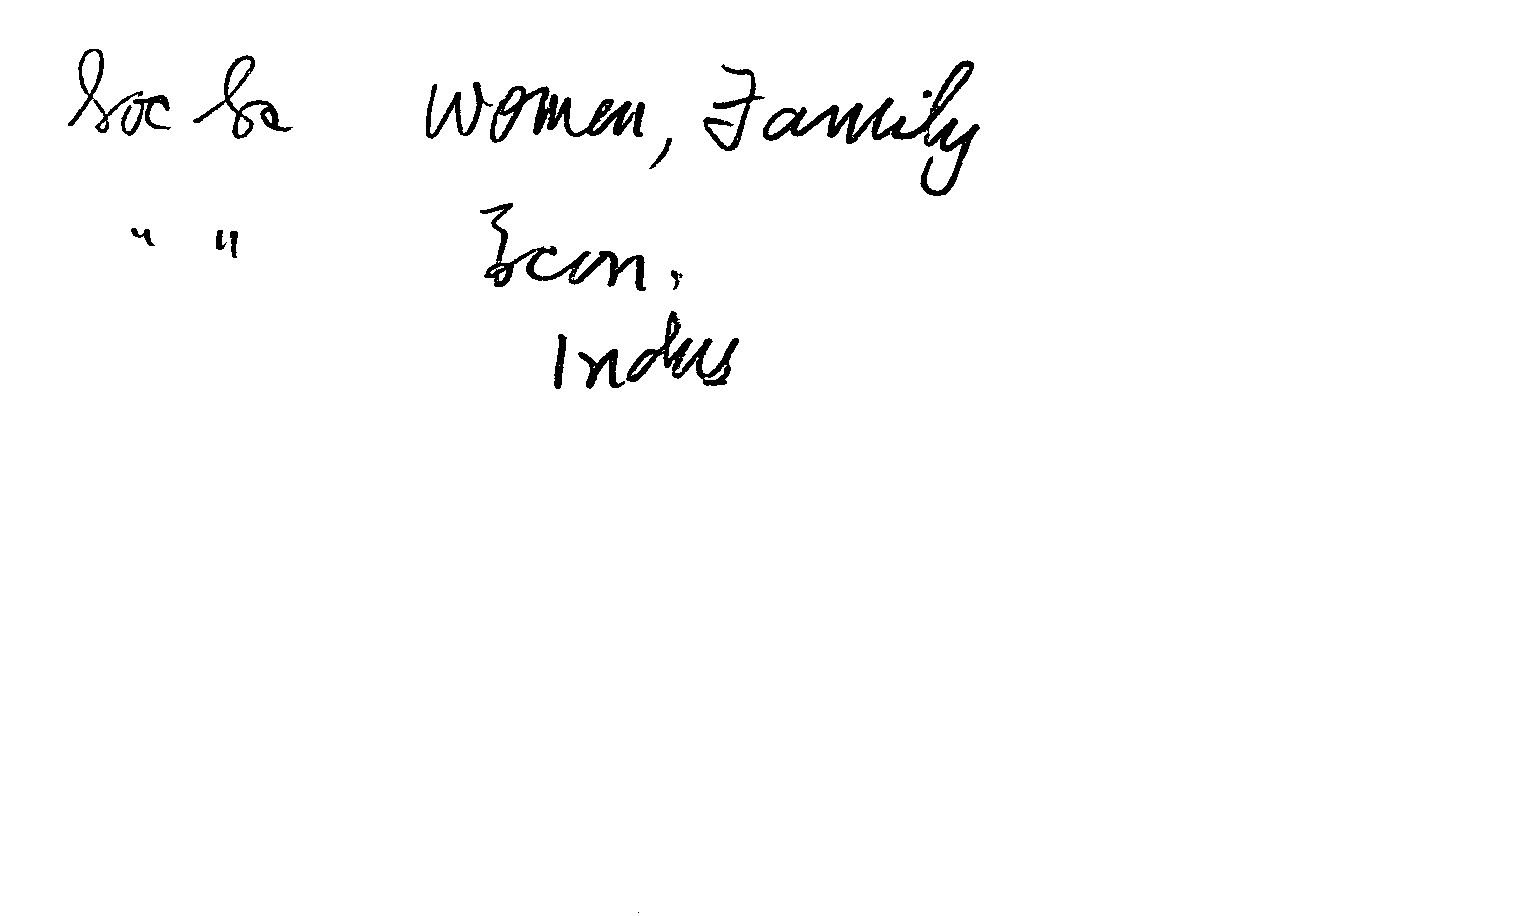 Soc Sc Women, Family
" " Econ.
Indus